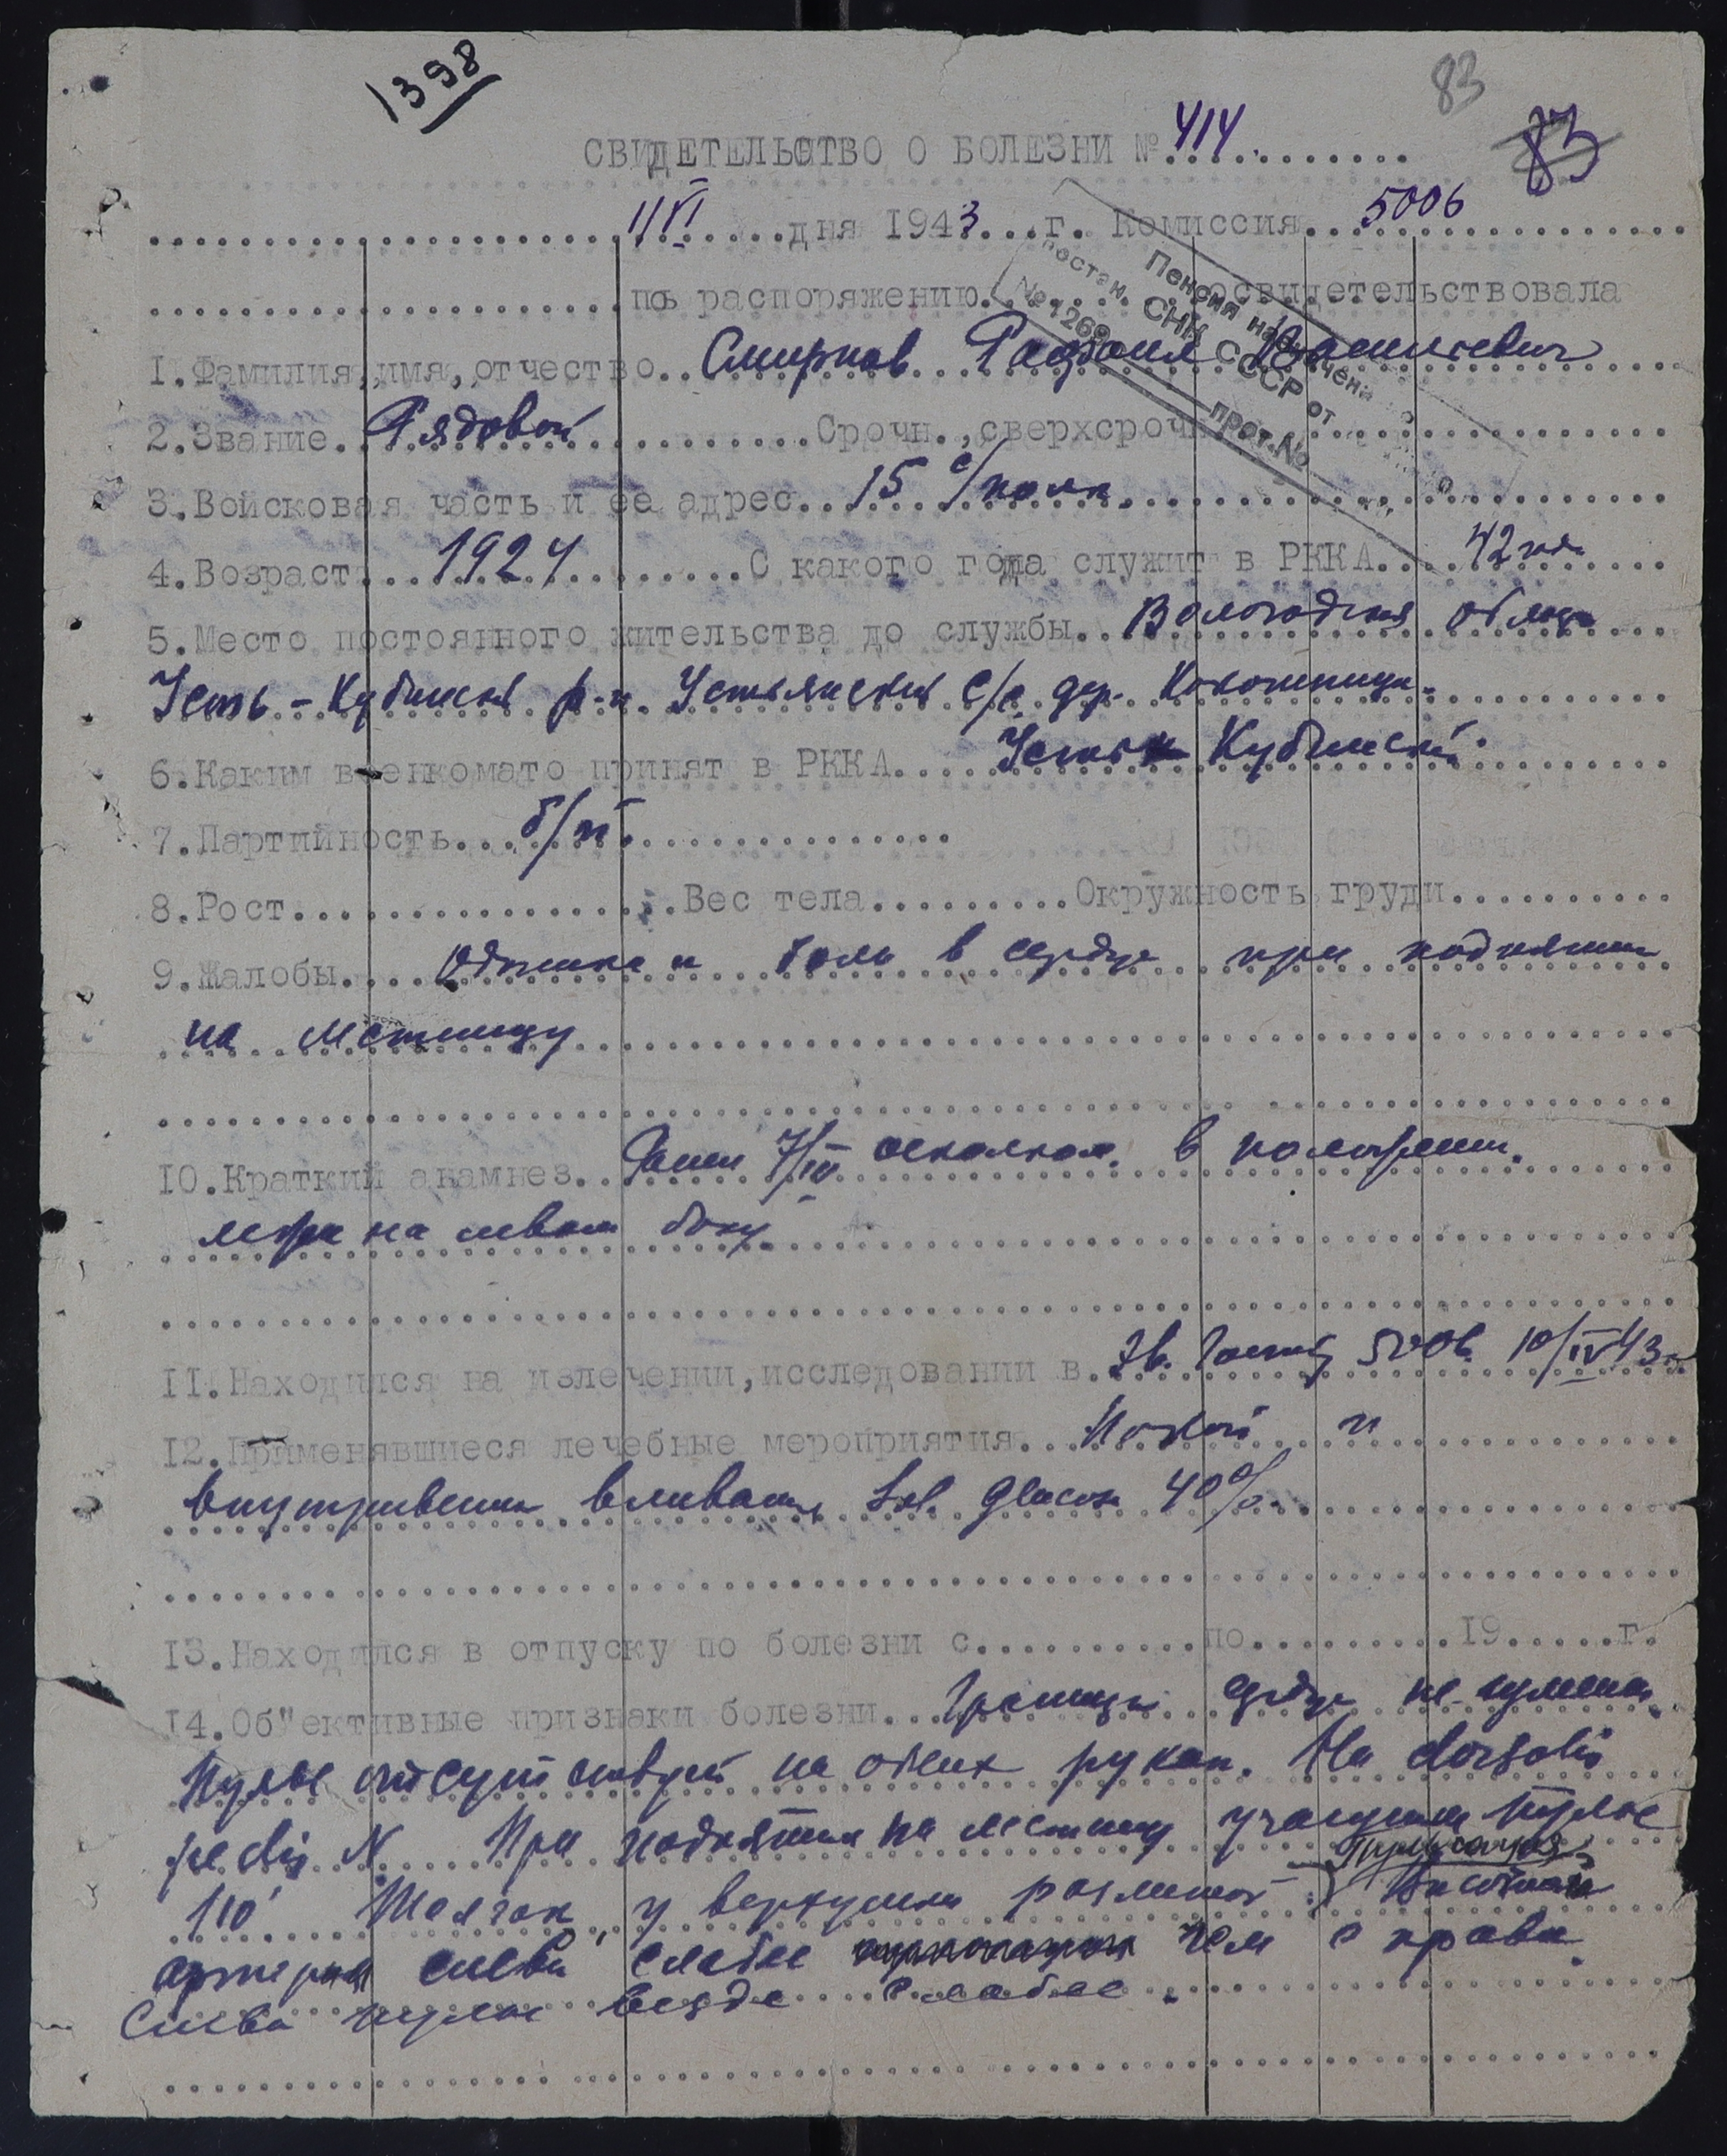 1398
83
83
СВИДЕТЕЛЬСТВО О БОЛЕЗНИ № 414
11/VI дня 1943 г. Комиссия 5006
по распоряжению освидетельствовала
Пенсия назначена по
постан. СНК СССР от
№ 1269 прот. №
1. Фамилия, имя, отчество Смирнов Рафаил
2. Звание Рядовой Срочн., сверхсрочн.
3. Войсковая часть и ее адрес 15 с/полк
4. Возраст 1924 С какого года служит в РККА 42 года
5. Место постоянного жительства до службы Вологодская область
Усть-Кубинский р-н. Устьянский с/с. дер.
6. Каким военкомато принят в РККА Усть Кубинский
7. Партийность б/п.
8. Рост Вес тела Окружность груди
9. Жалобы Одышка и боль в сердце при поднятии
на лестницу
10. Краткий анамнез Ранен 7/IV осколком в положении
лежа на левом боку
11. Находился на излечении, исследовании в Эв. Госпит. 5006. 10/IV 43 г.
12. Применявшиеся лечебные мероприятия Покой и
внутривенн. вливания Sol. Glucos. 40%.
13. Находился в отпуску по болезни с по 19 г.
14. Об"ективные признаки болезни Границы сердца не изменен.
Пульс отсутствует на обеих руках. На dorsalis
pedis N При поднятии на лестницу учащение пульса
110 Толчок у верхушки разлитой Пульсация
височной
артерии слева слабее чем с права.
Слева пульс везде слабее.